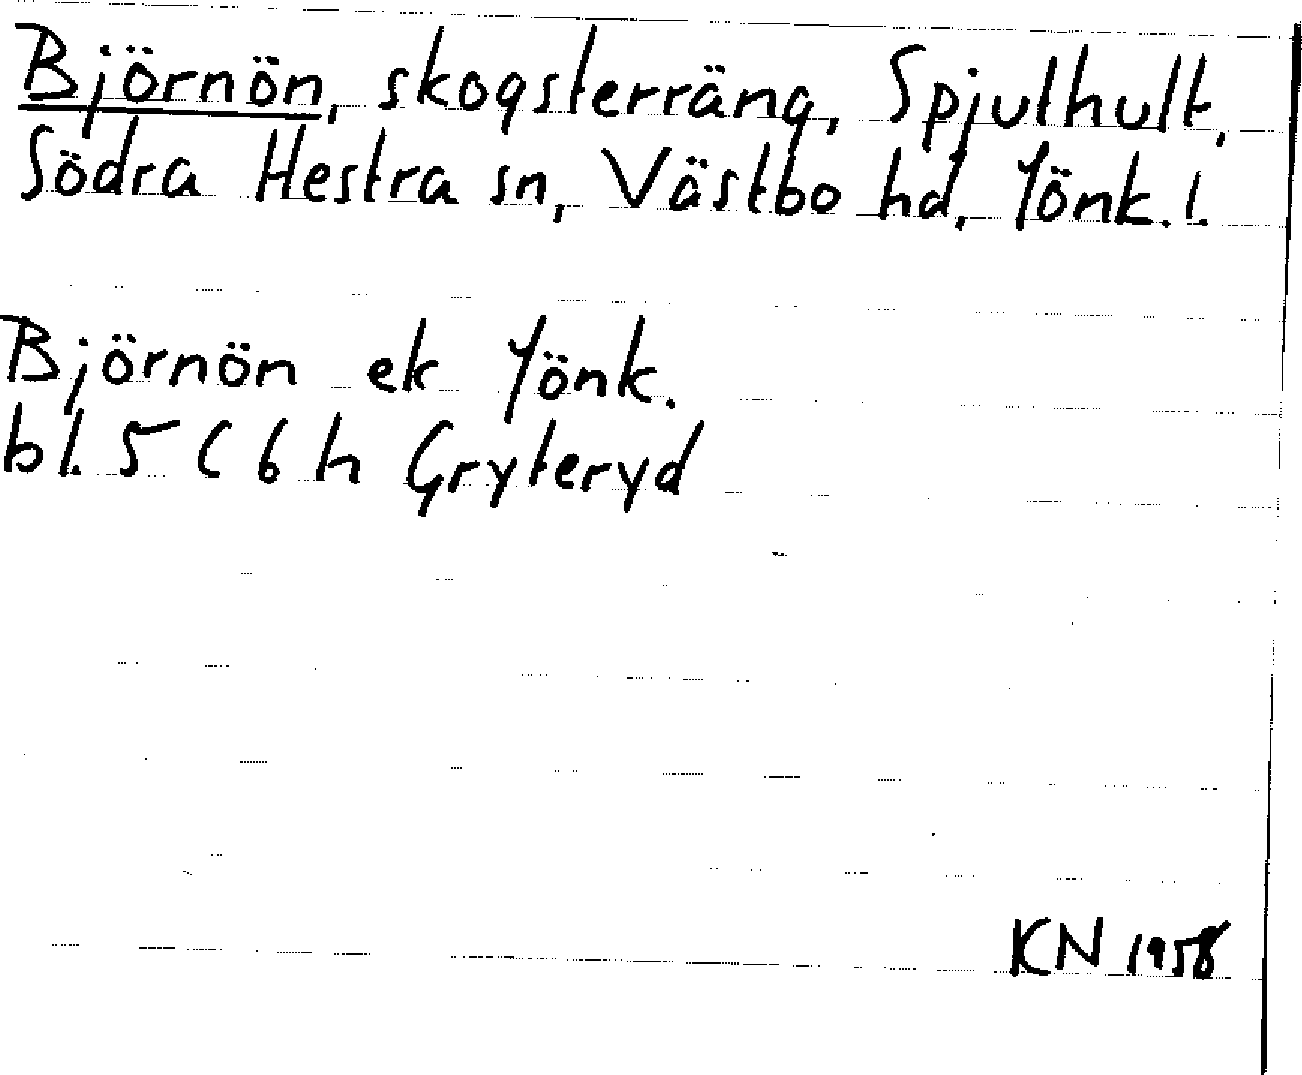 Björnön, skogsterräng, Spjuthult,
Södra Hestra sn, Västbo hd, Jönk. l.
Björnön ek Jönk.
bl. 5 C 6 h Gryteryd
KN 1958